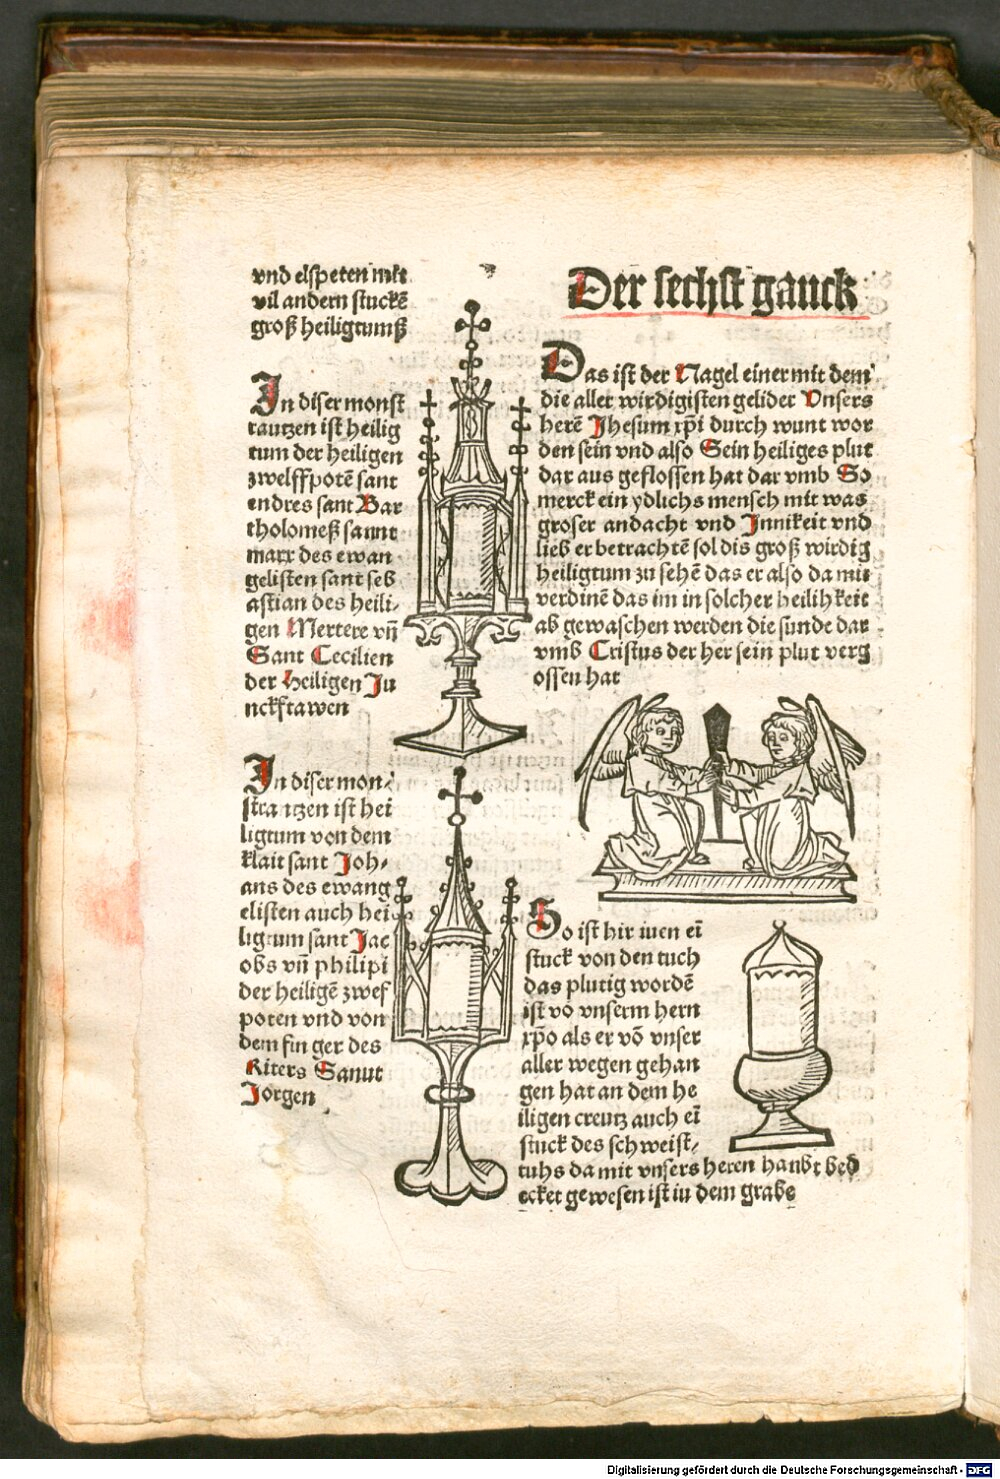 vnd elspeten mit
vil andern stuckē
groß heiligtumß
In diser monst
rantzen ist heilig
tum der heiligen
zwelffpotē sant
endres sant Bar
tholomeß sannt
marx des ewan
gelisten sant seb
astian des heili-
gen Mertere vn̄
Sant Cecilien
der heiligen Ju
nckfrawen
In diser mon-
strantzen ist hei
ligtum von dem
klait sant Joh-
ans des ewang
elisten auch hei
ligtum sant Jac
obs vn̄ philipi
der heiligē zwef
poten vnd von
dem fin ger des
Riters Sannt
Jörgen
Der sechst ganck
Das ist der Nagel einer mit dem
die aller wirdigisten gelider Vnsers
herē Jhesum xp̄i durch wunt wor
den sein vnd also Sein heiliges plut
dar aus geflossen hat dar vmb So
merck ein ydlichs mensch mit was
groser andacht vnd Innikeit vnd
lieb er betrachtē sol dis groß wirdig
heiligtum zu sehē das er also da mit
verdinē das im in solcher heilihkeit
ab gewaschen werden die sunde dar
vmb Cristus der her sein plut verg
ossen hat
So ist hir inen eī
stuck von den tuch
das plutig wordē
ist vō vnserm hern
xp̄o als er vō vnser
aller wegen gehan
gen hat an dem he
iligen creutz auch eī
stuck des schweist-
tuhs da mit vnsers heren haubt bed
ecket gewesen ist in dem grabe
Digitalisierung gefördert durch die Deutsche Forschungsgemeinschaft - DFG